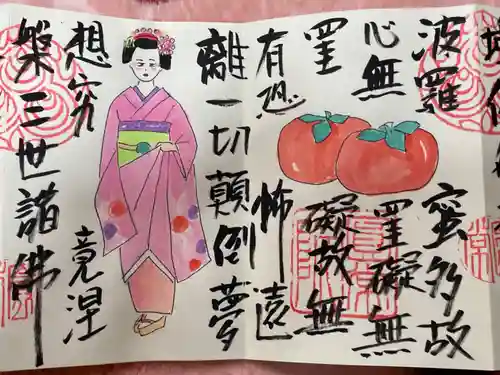 波羅蜜多故
心無罣礙無
罣礙故無
有恐怖遠
離一切顛倒夢
想究竟涅
槃三世諸佛